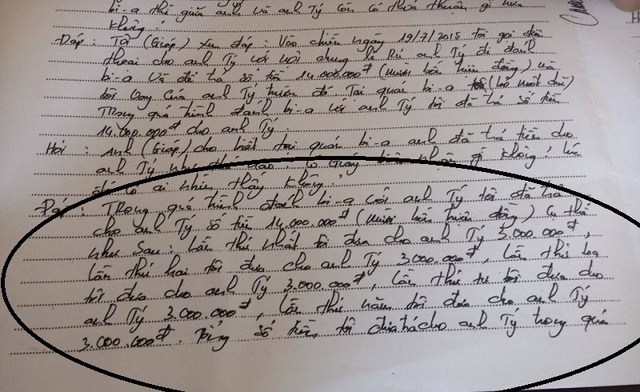 bi-a thì giữa anh và anh Tý còn có thỏa thuận gì nữa
không?
Đáp: Tôi (Giáp) xin đáp: Vào chiều ngày 19/7/2015 tôi gọi điện
thoại cho anh Tý với nội dung là rủ anh Tý đi đánh
bi-a và để trả số tiền 14.000.000đ (Mười bốn triệu đồng) mà
tôi vay của anh Tý trước đó. Tại quán bi-a
Trong quá trình đánh bi-a với anh Tý tôi đã trả số tiền
14.000.000đ cho anh Tý
Hỏi: Anh (Giáp) cho biết tại quán bi-a anh đã trả tiền cho
anh Tý như thế nào có giấy biên nhận gì không? Lúc
đó có ai nhìn thấy không?
Đáp: Trong quá trình đánh bi-a với anh Tý tôi đã trả
cho anh Tý số tiền 14.000.000đ (Mười bốn triệu đồng) cụ thể
như sau: Lần thứ nhất tôi đưa cho anh Tý 3.000.000đ,
lần thứ hai tôi đưa cho anh Tý 3.000.000đ, lần thứ ba
tôi đưa cho anh Tý 3.000.000đ, lần thứ tư tôi đưa cho
anh Tý 3.000.000đ, lần thứ năm tôi đưa cho anh Tý
3.000.000đ. Tổng số tiền, tôi đưa trả cho anh Tý trong quá